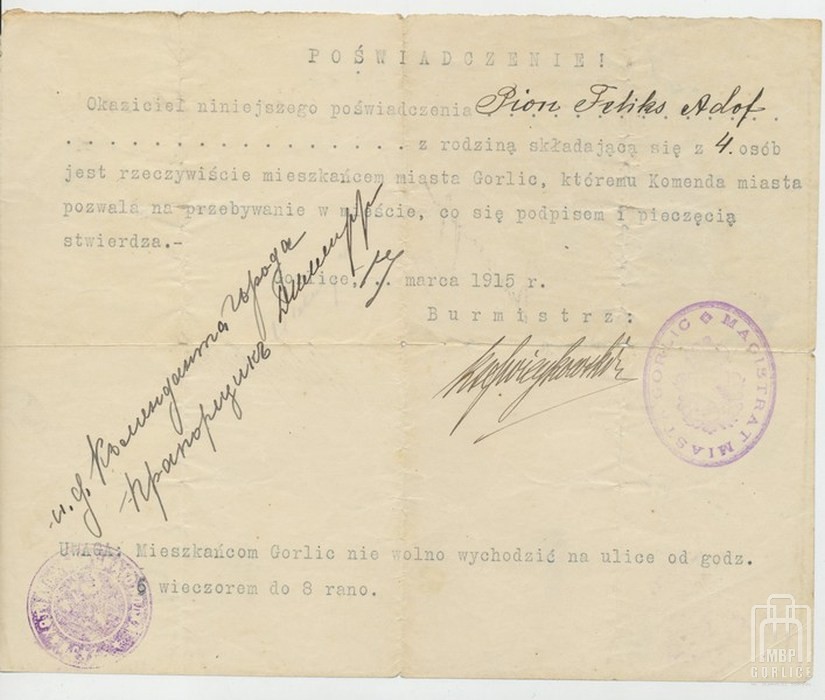 POŚWIADCZENIE!
Okaziciel niniejszego poświadczenia Pion Feliks Adof
. . . . . . . . . . . . . . . . . . z rodziną składającą się z 4. osób
jest rzeczywiście mieszkańcem miasta Gorlic, któremu Komenda miasta
pozwala na przebywanie w mieście, co się podpisem i pieczęcią
stwierdza.-
Gorlice, 17 marca 1915 r.
Burmistrz:
MAGISTRAT MIASTA GORLIC
и. д. Коменданта города
Прапорщикъ
UWAGA: Mieszkańcom Gorlic nie wolno wychodzić na ulice od godz.
6 wieczorem do 8 rano.
SMBP
GORLICE